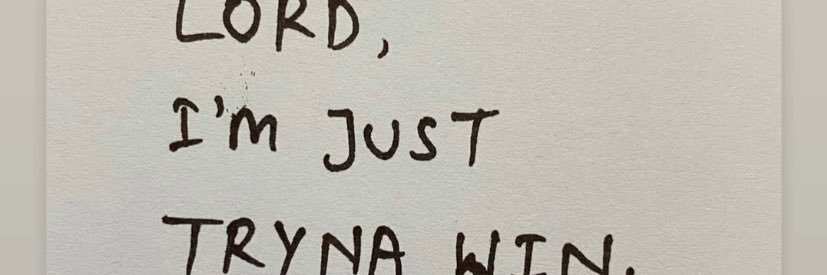 LORD,
I'm JUST
TRYNA WIN.